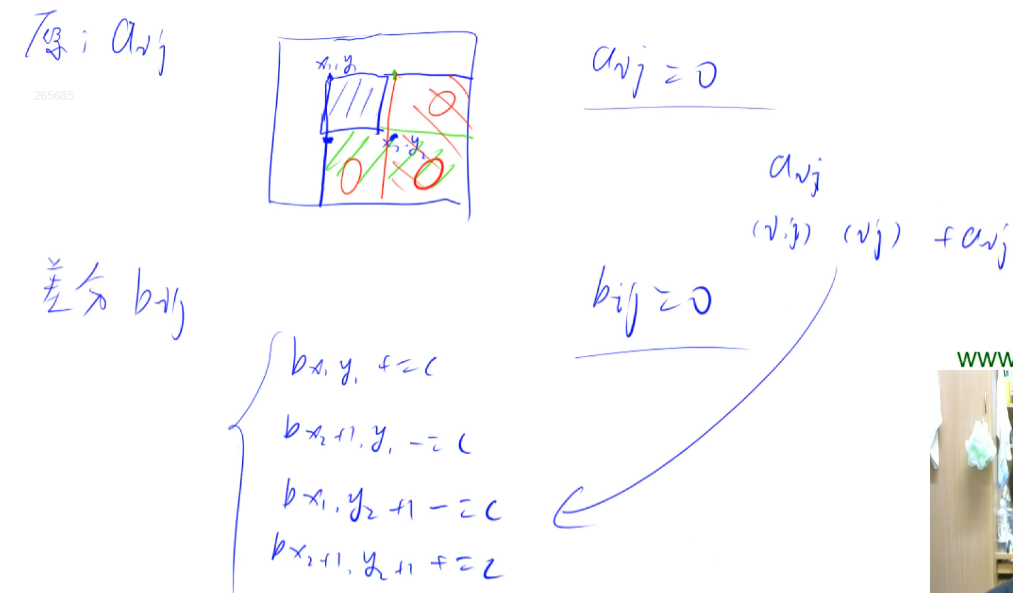 原: aij
265685
x1,y1
x2,y2
aij = 0
aij
(i,j) (i,j) +aij
差分 bij
bij = 0
bx1,y1 += c
bx2+1,y1 -= c
bx1,y2+1 -= c
bx2+1,y2+1 += c
www